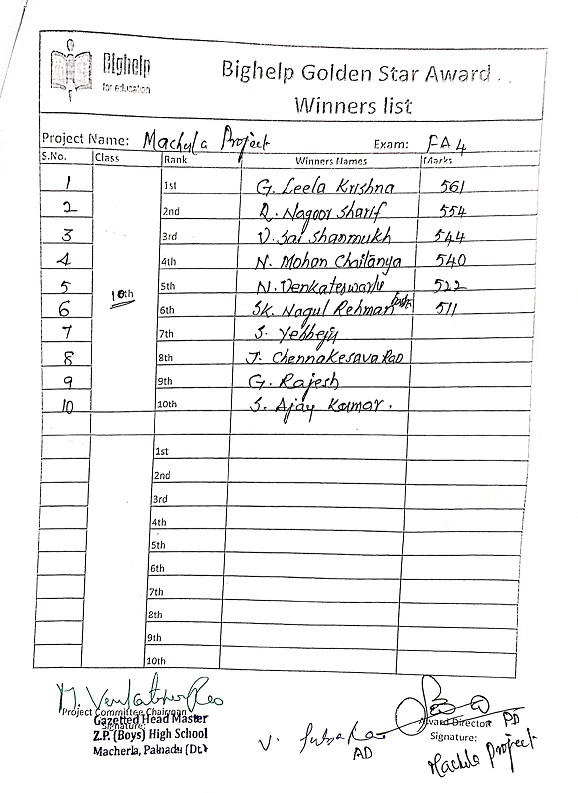 Bighelp
for education
Bighelp Golden Star Award
Winners list
Project Name: Macherla Project Exam: FA4
S.No. Class Rank Winners Names Marks
1 1st G. Leela Krishna 561
2 2nd R. Nagoor Sharif 554
3 3rd V. Sai Shanmukh 544
4 4th N. Mohan Chaitanya 540
5 10th 5th N. Venkateswarlu 522
6 6th SK. Nagul Rehman 511
7 7th S.
8 8th J. Chennakesava Rao
9 9th G. Rajesh
10 10th S. Ajay Kumar.
1st
2nd
3rd
4th
5th
6th
7th
8th
9th
10th
Project Committee Chairman
Signature:
Gazetted Head Master
Z.P. (Boys) High School
Macherla, Palnadu (Dt.)
V. Subba Rao
AD
Award Director PD
Signature:
Macherla Project